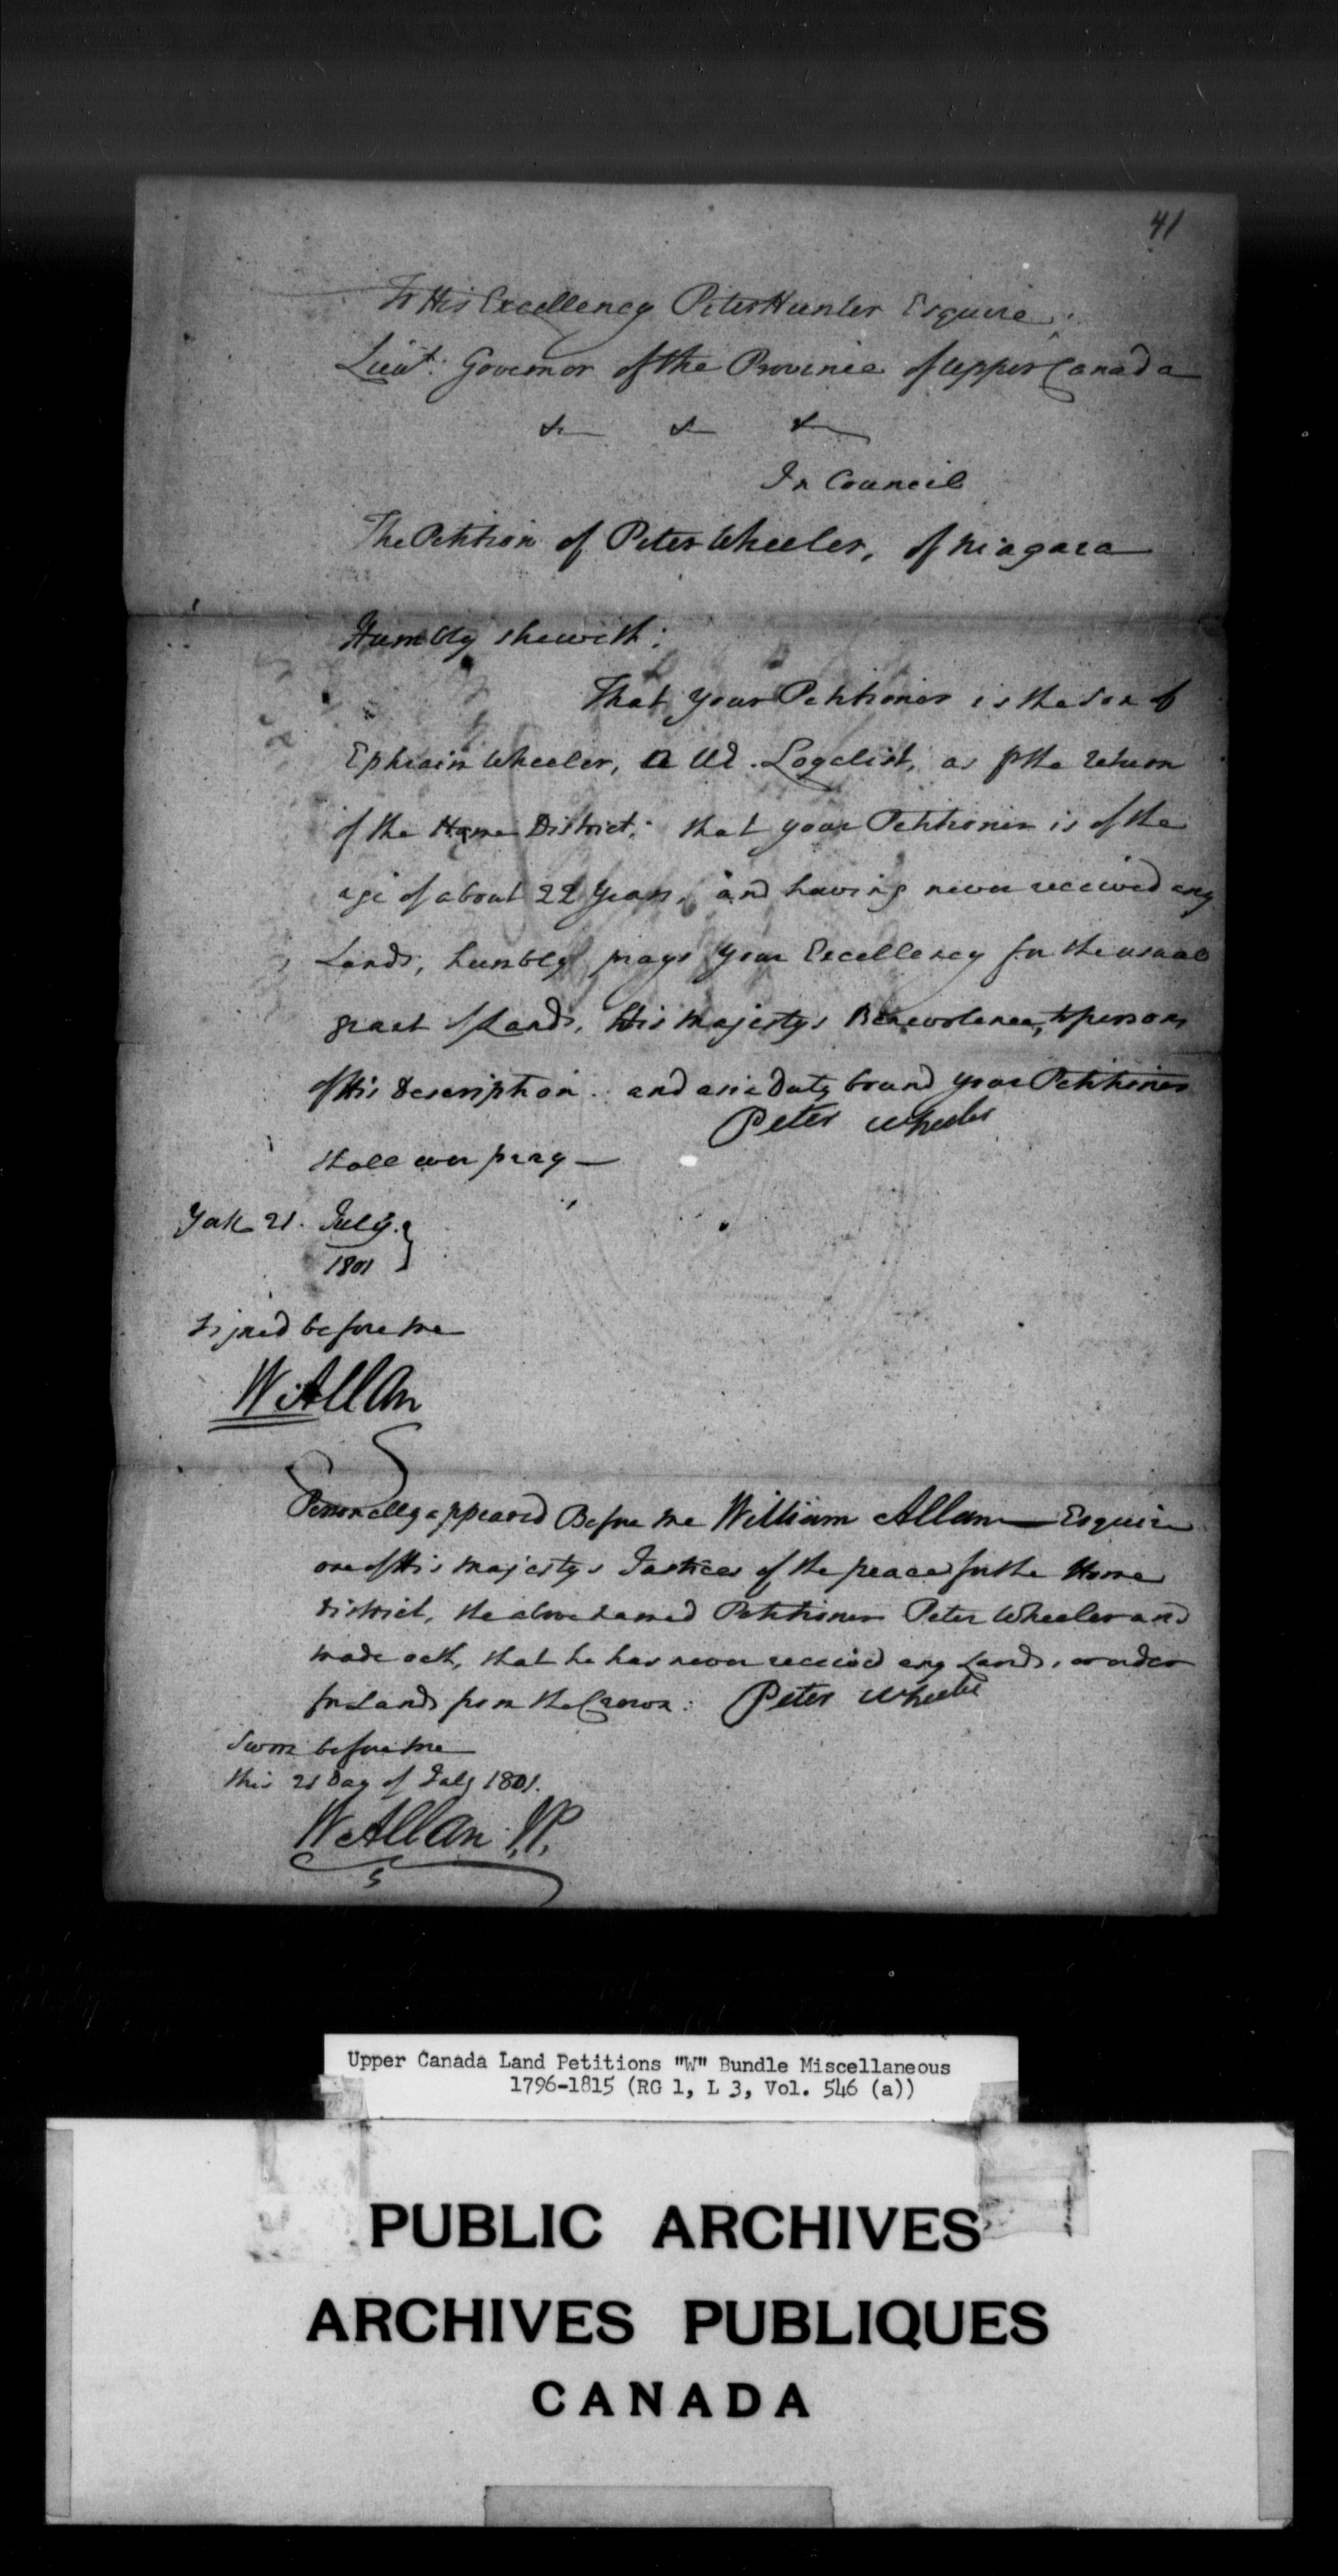 41
To His Excellency Peter Hunter Esquire,
Lieut. Governor of the Province of Upper Canada
& & &
In Council
The Petition of Peter Wheeler, of Niagara
Humbly sheweth:
That your Petitioner is the Son of
Ephraim Wheeler, a UE. Loyalist, as the return
of the Home District; that your Petitioner is of the
age of about 22 Years, and having never received any
Lands, humbly prays your Excellency for the usual
grant of Lands, His Majestys Benevolence, to persons
of His Description. and as in Duty bound your Petitioner
Peter Wheeler
Shall ever pray —
York 21. July.
1801
Signed before me
W Allan
Personally appeared Before me William Allan — Esquire
one of His Majestys Justices of the peace for the Home
District, the above named Petitioner Peter Wheeler and
made oath, that he has never received any Lands, or order
for Lands from the Crown. Peter Wheeler
Sworn before me
this 21 Day of July 1801.
W Allan J.P.
Upper Canada Land Petitions "W" Bundle Miscellaneous
1796-1815 (RG 1, L 3, Vol. 546 (a))
PUBLIC ARCHIVES
ARCHIVES PUBLIQUES
CANADA